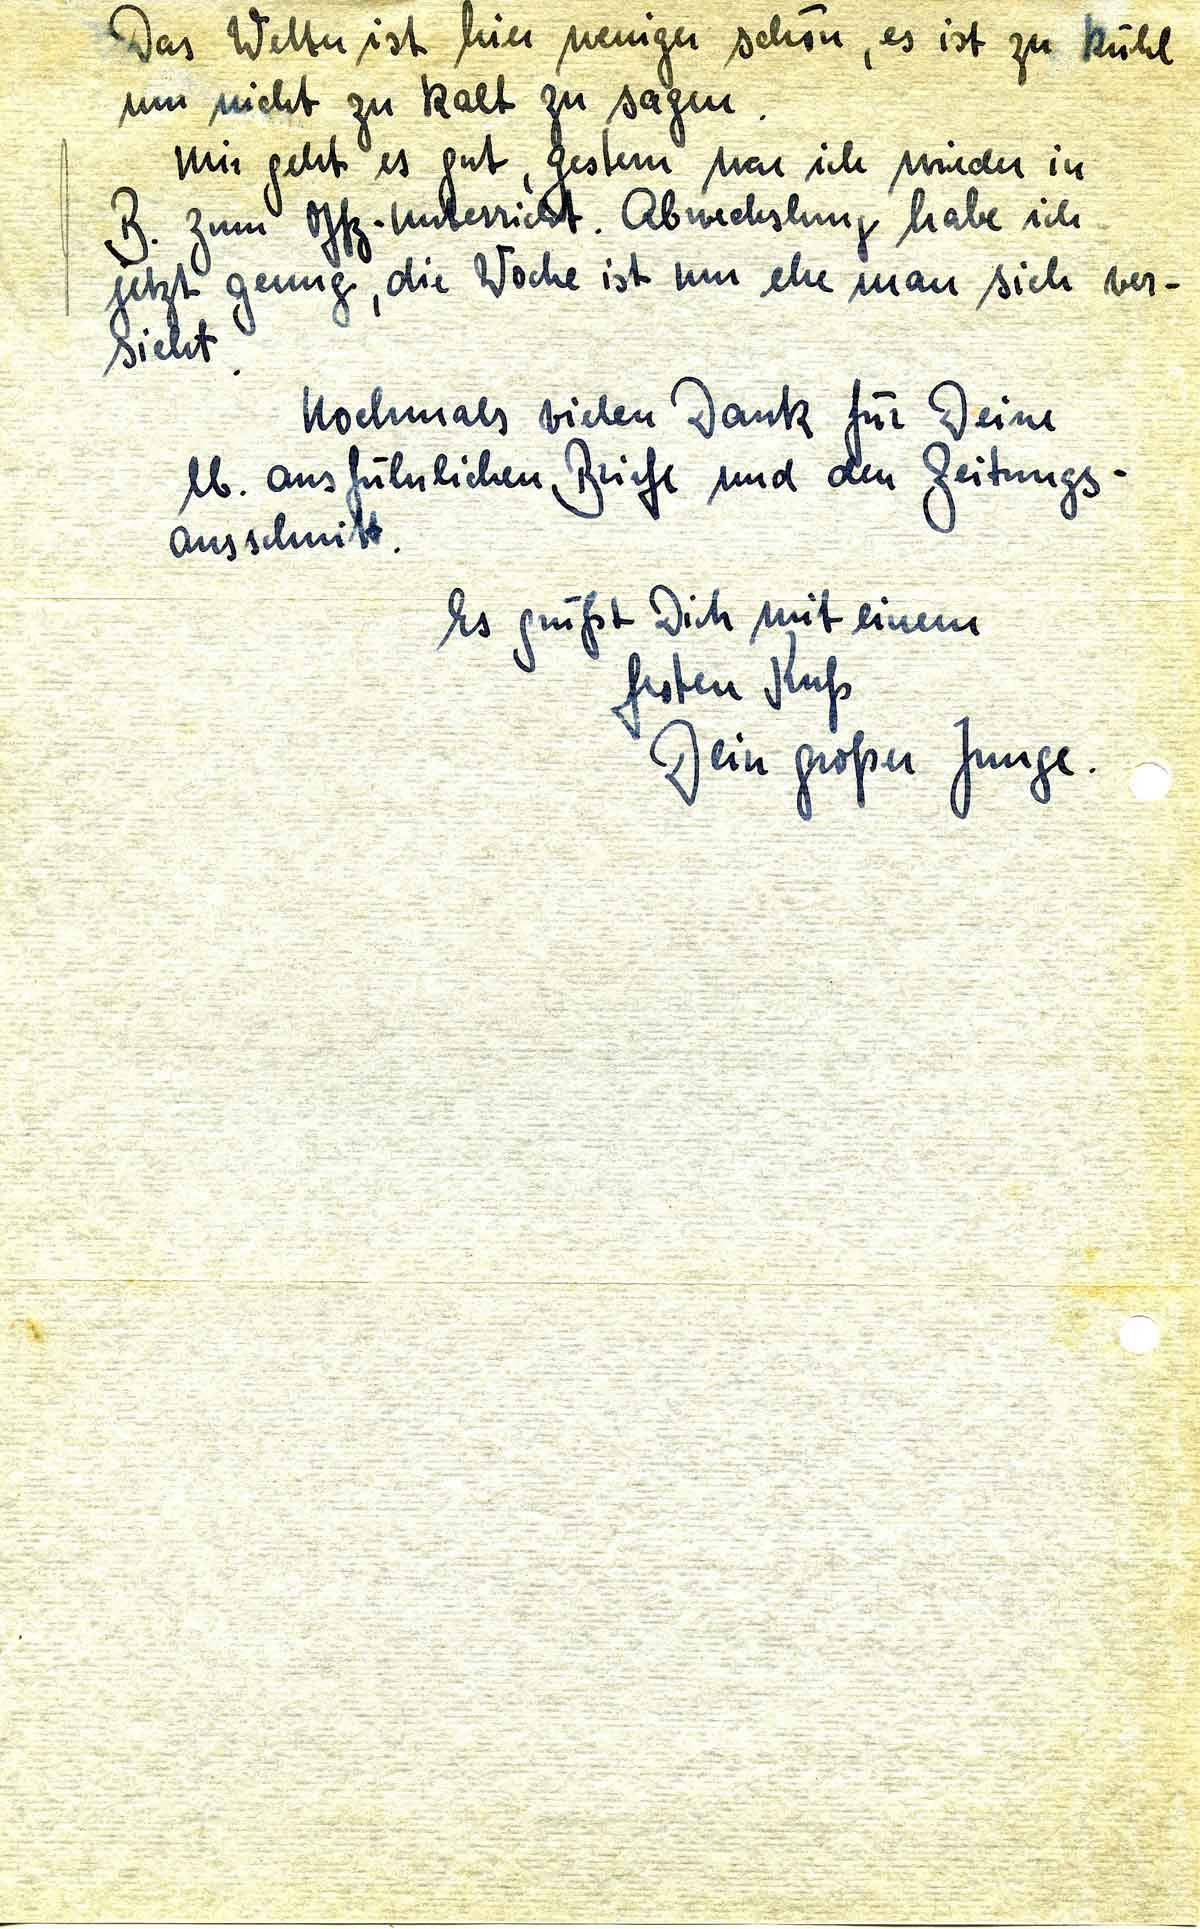 Das Wetter ist hier weniger schön, es ist zu kühl
um nicht zu kalt zu sagen.
Mir geht es gut, gestern war ich wieder in
B. zum Offz-Unterricht. Abwechslung habe ich
jetzt genug, die Woche ist um ehe man sich ver-
sieht.
Nochmals vielen Dank für Deine
lb. ausführlichen Briefe und den Zeitungs-
ausschnitt.
Es grüßt Dich mit einem
festen Kuß
Dein großer Junge.